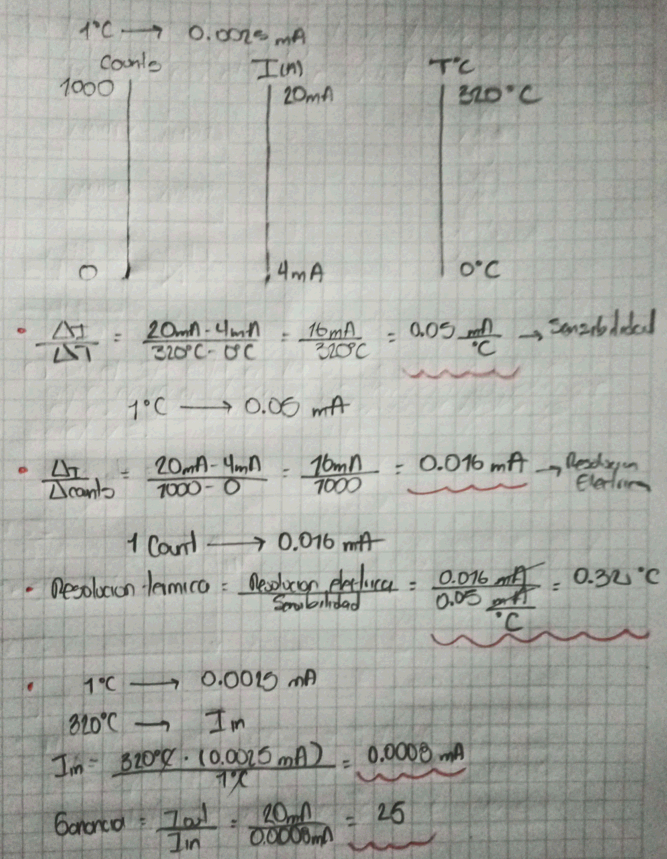 1°C → 0.0025 mA
Counts I(n) T°C
1000 20mA 320°C
0 4mA 0°C
• ΔI/ΔT = 20mA - 4mA / 320°C - 0°C = 16mA / 320°C = 0.05 mA/°C → Sensibilidad
1°C → 0.05 mA
• ΔI/Δcounts = 20mA - 4mA / 1000 - 0 = 16mA / 1000 = 0.016 mA → Resolucion Electrica
1 Count → 0.016 mA
• Resolucion termica = Resolucion electrica / Sensibilidad = 0.016 mA / 0.05 mA/°C = 0.32 °C
• 1°C → 0.0025 mA
320°C → In
In = 320°C · (0.0025 mA) / 1°C = 0.0008 mA
Ganancia = Iout / Iin = 20mA / 0.0008mA = 25